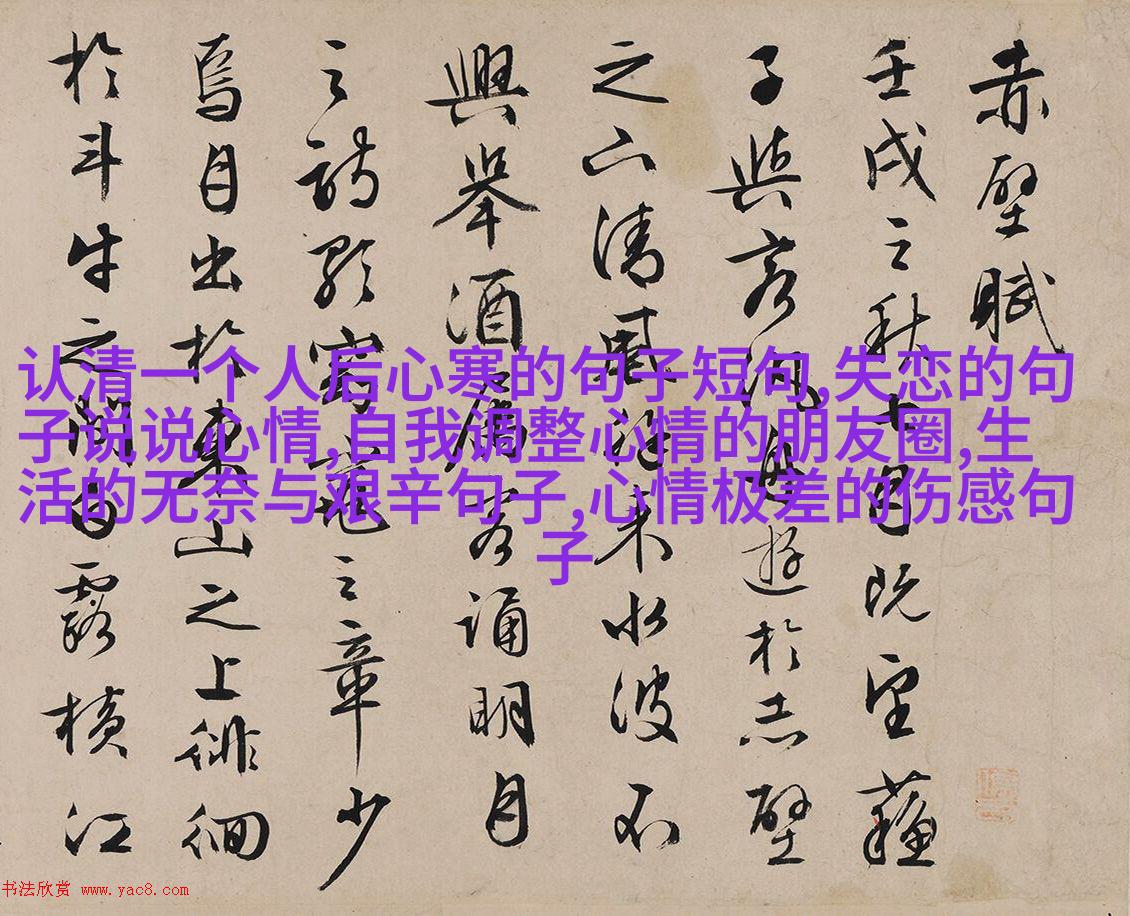 赤壁賦
壬戌之秋七月既望蘇
子與客泛舟遊於赤壁
之下清風徐來水波不
興舉酒屬客誦明月
之詩歌窈窕之章少
焉月出於東山之上徘徊
於斗牛之間白露橫江
认清一个人后心寒的句子短句,失恋的句
子说说心情,自我调整心情的朋友圈,生
活的无奈与艰辛句子,心情极差的伤感句
子
书法欣赏 www.yac8.com